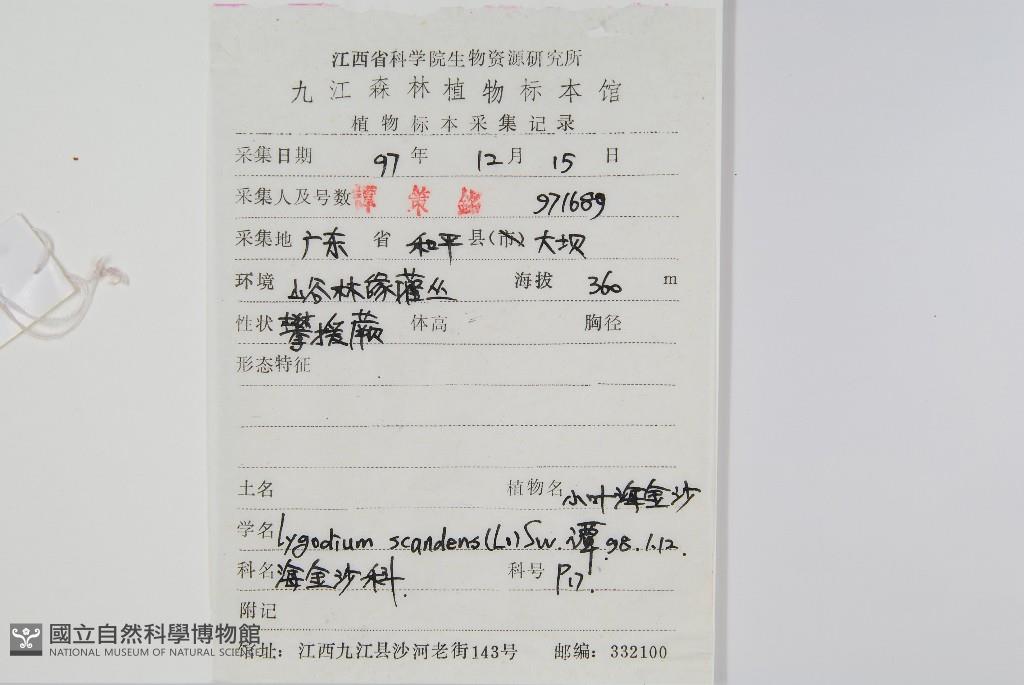 江西省科学院生物资源研究所
九江森林植物标本馆
植物标本采集记录
采集日期 97 年 12 月 15 日
采集人及号数 譚策銘 971689
采集地 广东 省 和平 县(市) 大坝
环境 山谷林缘灌丛 海拔 360 m
性状 攀援蕨 体高 胸径
形态特征
土名 植物名 小叶海金沙
学名 Lygodium scandens (L.) Sw. 谭 98.1.12.
科名 海金沙科. 科号 P17.
附记
馆址：江西九江县沙河老街143号 邮编：332100
國立自然科學博物館
NATIONAL MUSEUM OF NATURAL SCIENCE